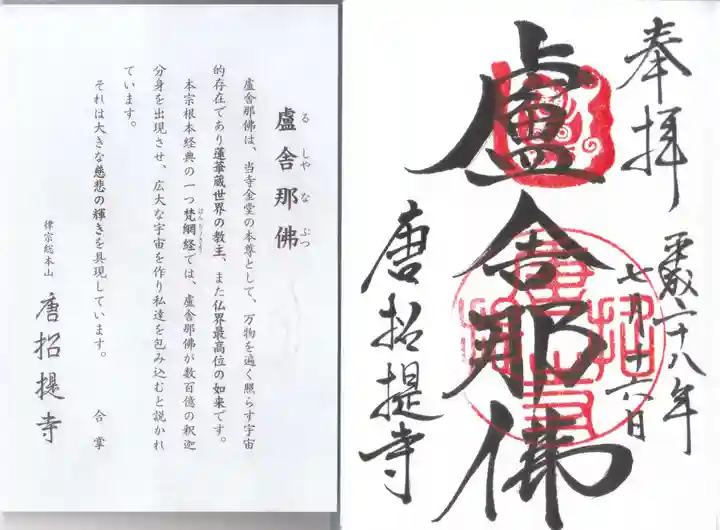 盧舎那佛
るしゃなぶつ
盧舎那佛は、当寺金堂の本尊として、万物を遍く照らす宇宙
的存在であり蓮華蔵世界の教主、また仏界最高位の如来です。
本宗根本経典の一つ梵網経では、盧舎那佛が数百億の釈迦
ぼんもうきょう
分身を出現させ、広大な宇宙を作り私達を包み込むと説かれ
ています。
それは大きな慈悲の輝きを具現しています。
合掌
律宗総本山
唐招提寺
奉拝
平成二十八年
七月十六日
盧舎那佛
唐招提寺